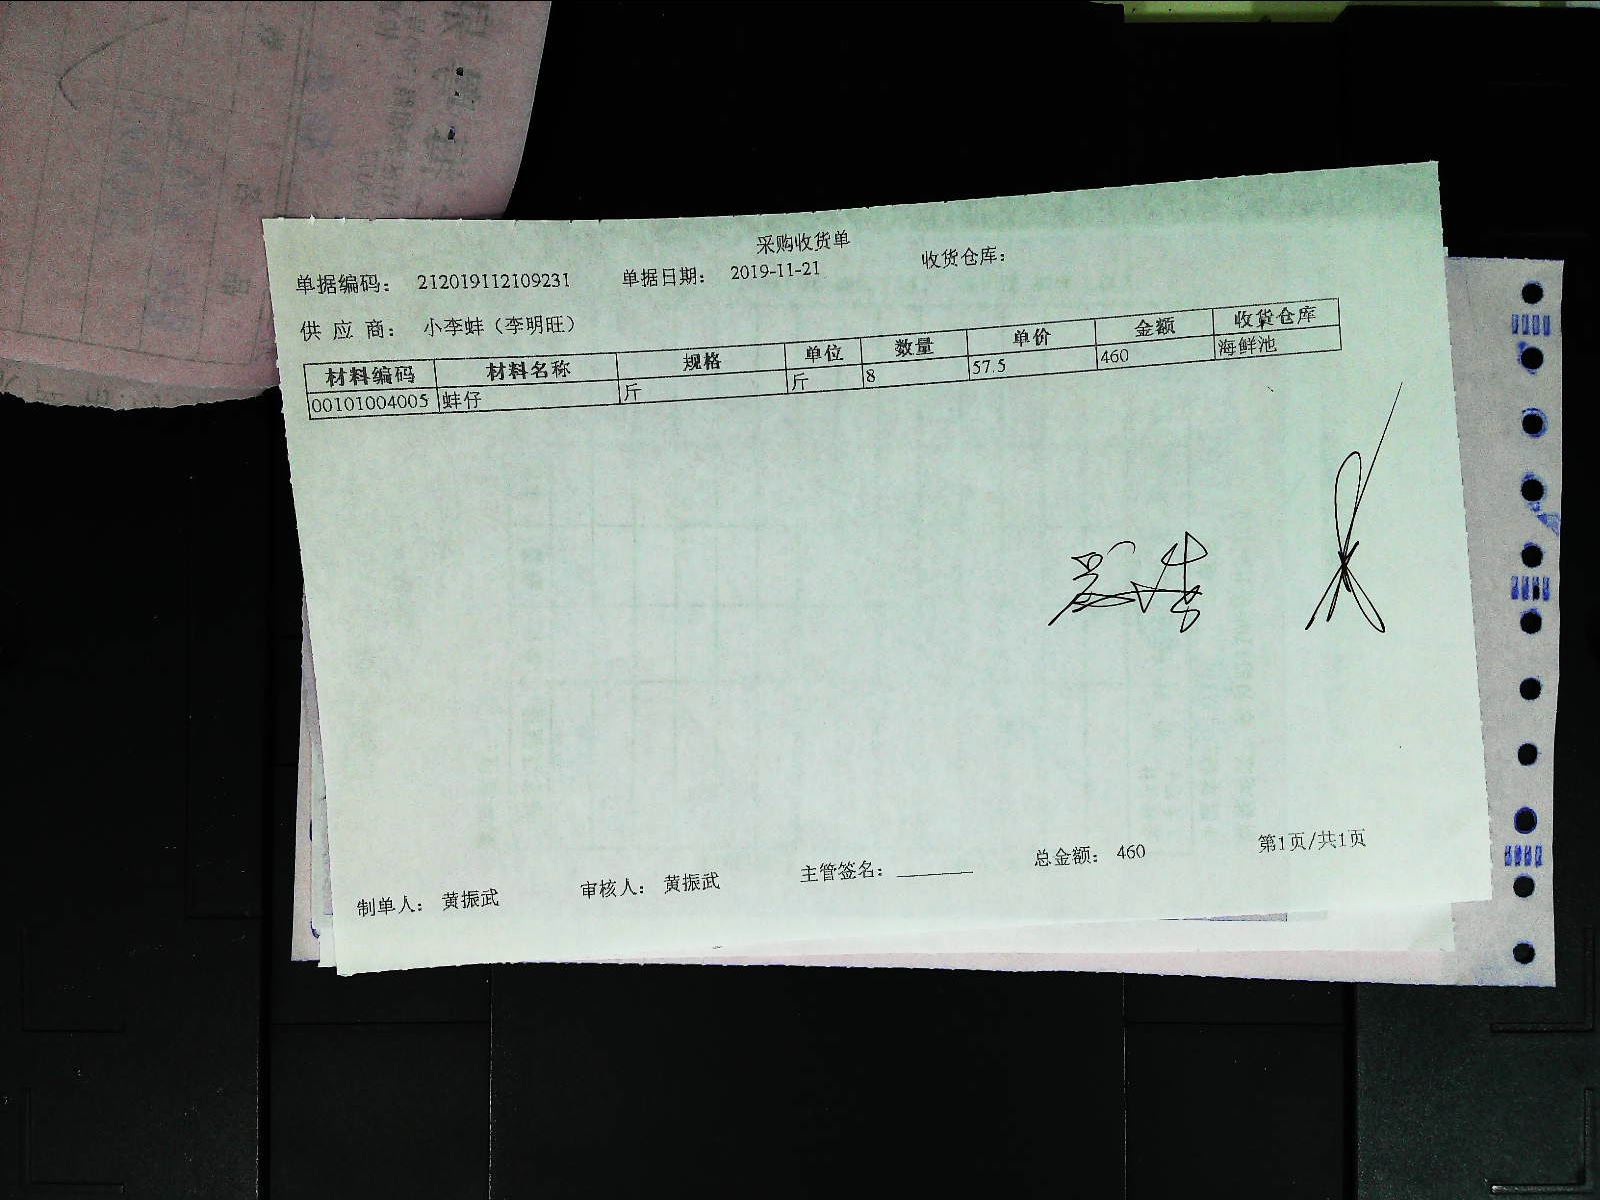 采购收货单
单据编码： 212019112109231 单据日期： 2019-11-21 收货仓库：
供 应 商： 小李蚌（李明旺）
材料编码 材料名称 规格 单位 数量 单价 金额 收货仓库
00101004005 蚌仔 斤 斤 8 57.5 460 海鲜池
制单人： 黄振武 审核人： 黄振武 主管签名： 总金额： 460 第1页/共1页